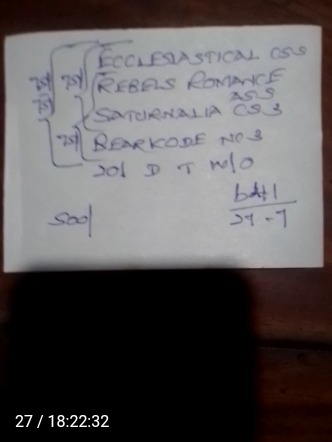 ECCLESIASTICAL CS3
REBELS ROMANCE
ASS
SATURNALIA CS3
BEARKODE NO3
201 D T W/O
bet1
500/
27-7
27 / 18:22:32